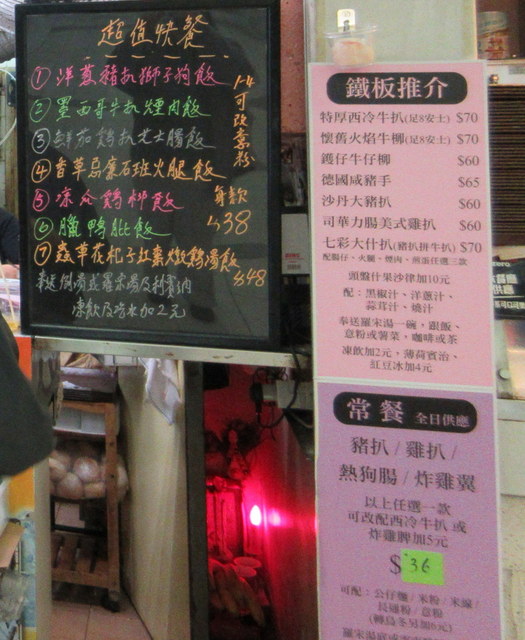 超值快餐
① 洋蔥豬扒獅子狗飯
② 墨西哥牛扒煙肉飯
③ 鮮茄鷄扒芝士腸飯
④ 香草烏廉石班火腿飯
1-4 可改意粉
⑤ 凉瓜鷄柳飯
⑥ 臘鴨髀飯
每款 $38
⑦ 蟲草花杞子红棗炆鷄湯飯 $48
凍飲及汽水加2元
鐵板推介
特厚西冷牛扒(足8安士) $70
懷舊火焰牛柳(足8安士) $70
鑊仔牛仔柳 $60
德國咸豬手 $65
沙丹大豬扒 $60
司華力腸美式雞扒 $60
七彩大什扒(豬扒拼牛扒) $70
配腸仔、火腿、煙肉、煎蛋任選三款
頭盤什果沙律加10元
配：黑椒汁、洋蔥汁、
蒜茸汁、燒汁
奉送羅宋湯一碗，跟飯、
意粉或薯菜，咖啡或茶
凍飲加2元，薄荷賓治、
紅豆冰加4元
常餐 全日供應
豬扒 / 雞扒 /
熱狗腸 / 炸雞翼
以上任選一款
可改配西冷牛扒 或
炸雞脾加5元
$ 36
可配：公仔麵 / 米粉 / 米線 /
長通粉 / 意粉
(轉烏冬另加6元)